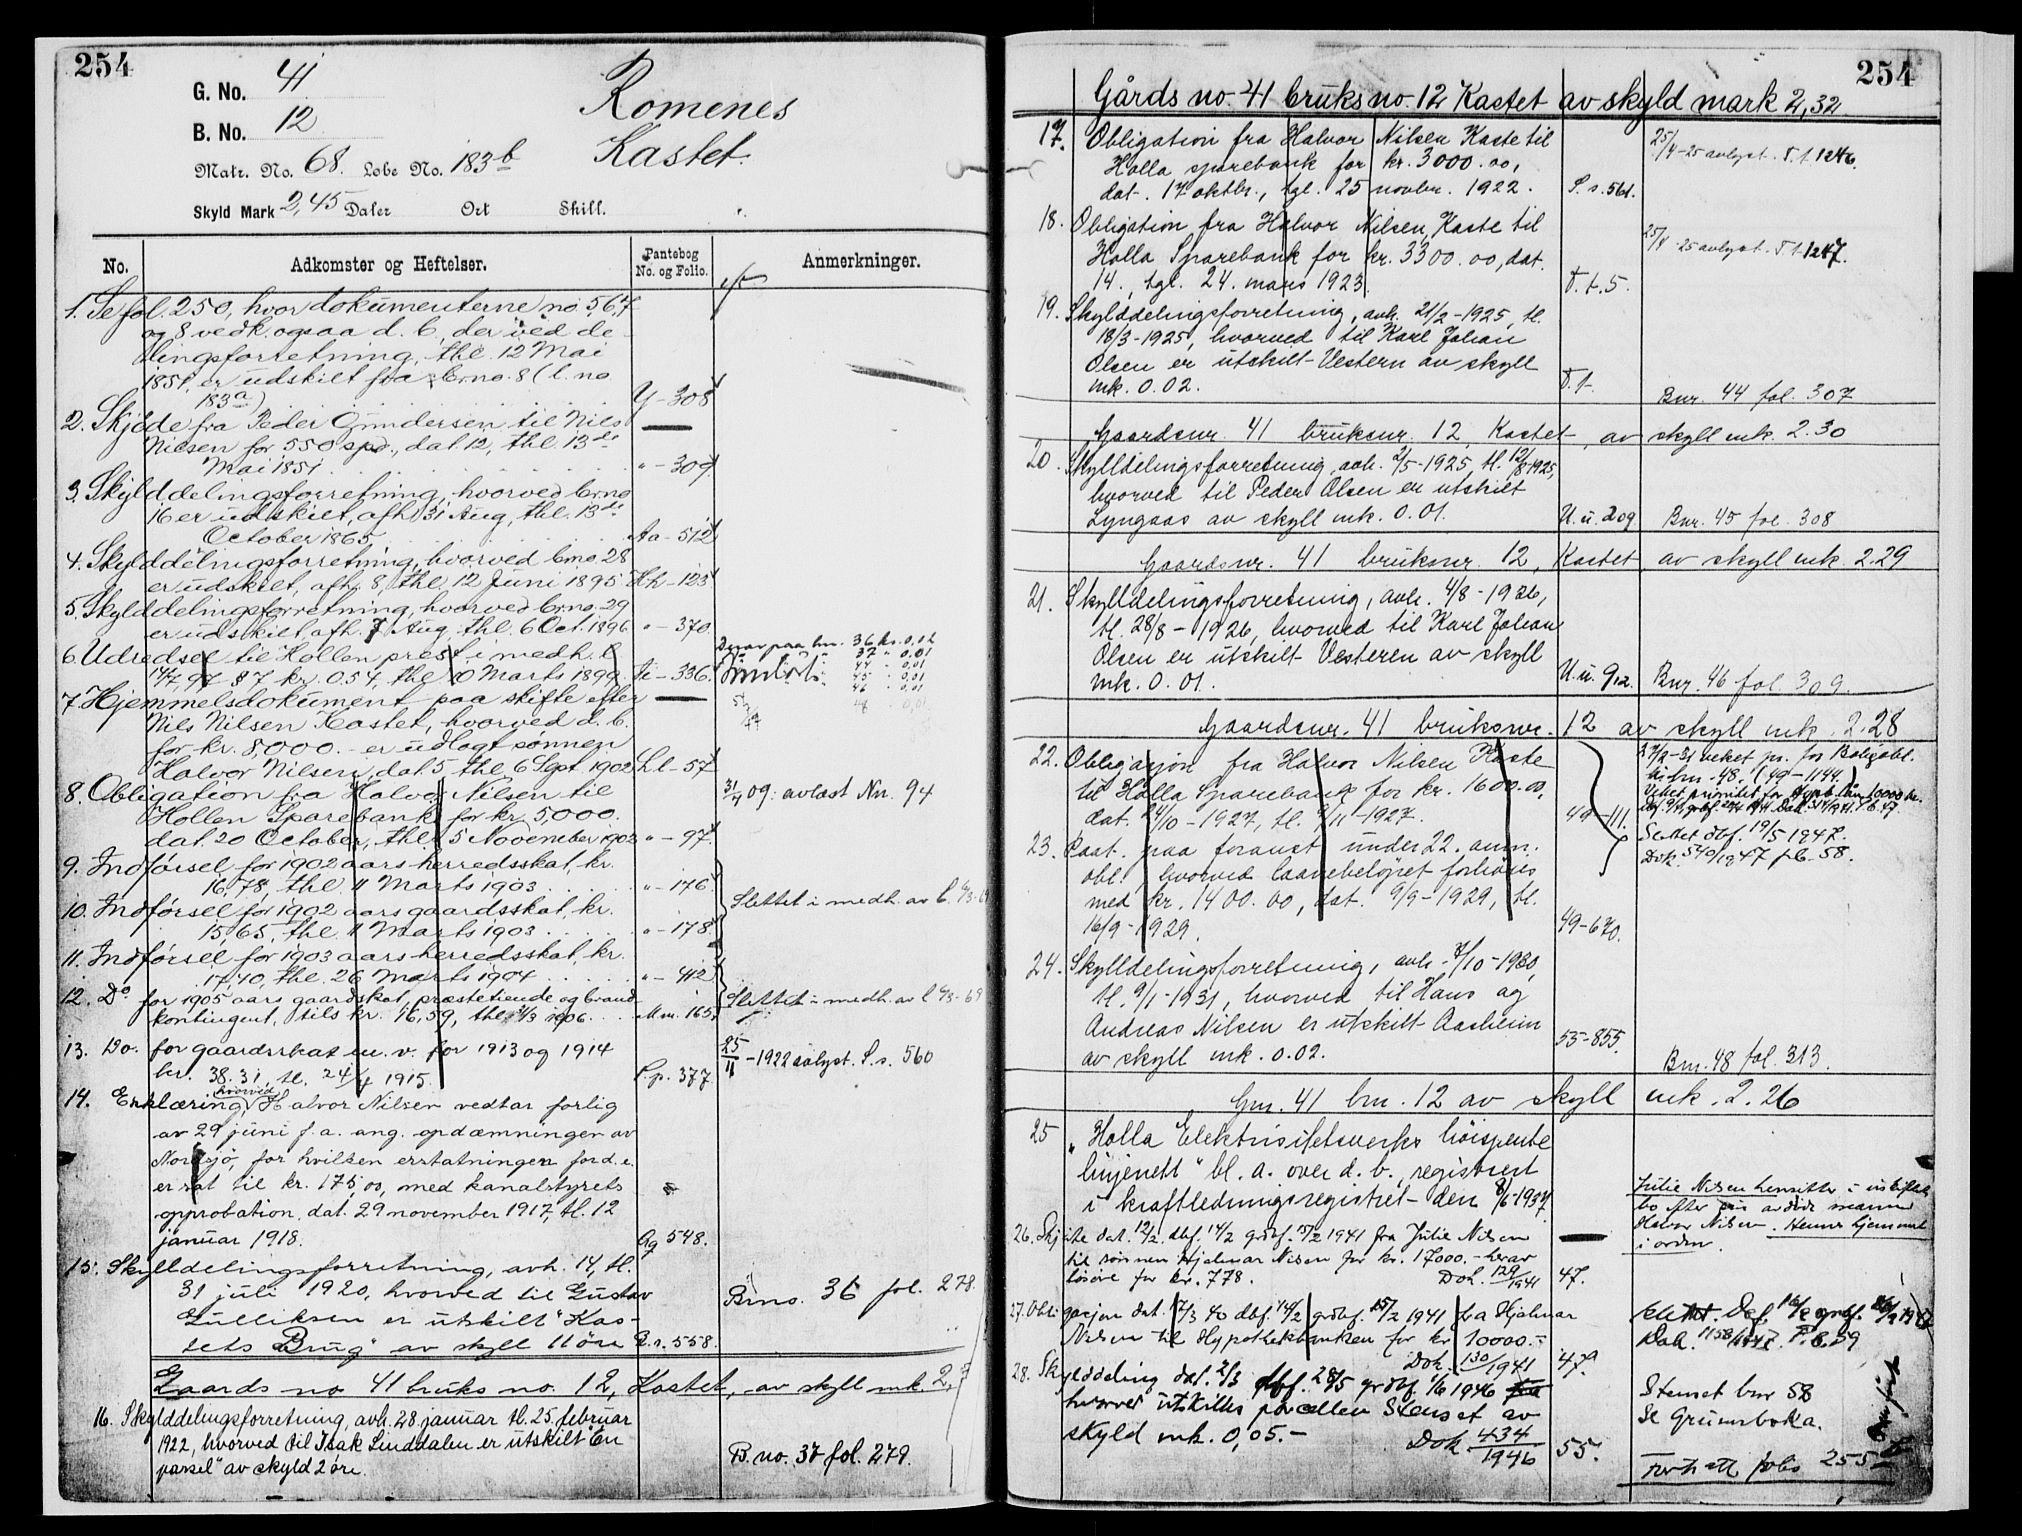 254
G. No. 41
B. No. 12
Romenes
Kastet.
Matr. No. 68. Løbe No. 183 b
Skyld Mark 2,45 Daler Ort Skill.
No. Adkomster og Heftelser. Pantebog No. og Folio. Anmerkninger.
1. Se fol. 250, hvor dokumenterne no 5,6,7
og 8 vedk. ogsaa d. b., der ved de-
lingsforretning, thl. 12 Mai
1851, er udskilt fra brno. 8 (l. no
183 a) Y - 308
2. Skjøde fra Peder Gundersen til Nils
Nilsen for 550 spd., dat. 12, thl. 13de
Mai 1851 " - 309
3. Skylddelingsforretning, hvorved brno
16 er udskilt, afh. 31 Aug, thl. 13de
October 1865 Aa - 512
4. Skylddelingsforretning, hvorved brno. 28
er udskilt, afh. 8, thl. 12 Juni 1895 Hh - 123
5. Skylddelingsforretning, hvorved brno. 29
er udskilt, afh. 7 Aug, thl. 6 Oct. 1896 " - 370
6. Udredsel til Hollen prest i medh. l.
14/7, 97 § 7 kr. 0.54, thl. 10 Marts 1899 Ii - 336.
bnr. 36 kr. 0.02
37 " 0.01
44 " 0,01
45 " 0,01
46 " 0,01
48 " 0,01
7. Hjemmelsdokument paa skifte efter
Nils Nilsen Kastet, hvorved d. b.
for kr. 8,000.- er udlagt sønnen
Halvor Nilsen, dat. 5 thl. 6 Sept 1902 Ll - 57
8. Obligation fra Halvor Nilsen til
Hollen Sparebank for kr. 5,000.
dat. 20 October, thl. 5 November 1902 " - 97
31/4 09: avlæst Nn. 94
9. Indførsel for 1902 aars herredsskat, kr.
16,78, thl. 11 Marts 1903 " - 176
10. Indførsel for 1902 aars gaardsskat, kr.
15,65, thl. 11 Marts 1903 " - 178
Slettet i medh. av l.
11. Indførsel for 1903 aars herredsskat, kr.
17,40, thl. 26 Marts 1904 " - 412
12. Do for 1905 aars gaardskat, præstetiende og brand-
kontingent, tils kr. 16,59, thl. 1906. Mm. 165
Slettet i medh. av l
13. Do. for gaardsskat m. v. for 1913 og 1914
kr. 38.31, tl. 24/4 1915. P.p. 377
25/11 - 1922 avlyst. S. s. 560
14. Erklæring hvorved Halvor Nilsen vedtar forlig
av 29 juni f. a. ang. opdæmningen av
Nordsjø, for hvilken erstatningen for d. e.
er sat til kr. 175,00, med kanalstyrets
approbation, dat. 29 november 1917, tl. 12
januar 1918. Qq 548.
15. Skylldelingsforretning, avh. 14, tl.
31 juli 1920, hvorved til Gustav
Gulliksen er utskilt "Kas-
tets Brug" av skyll 11 øre R.r. 558.
Brno. 36 fol. 278.
Gaards no 41 bruks no. 12, Kastet, av skyll mk. 2,
16. Skylddelingsforretning, avh. 28 januar tl. 25. februar
1922, hvorved til Isak Linddalen er utskilt "En
parsel" av skyld 2 øre.
B. no. 37 fol. 279.
254
Gårds no. 41 bruks no. 12 Kastet av skyld mark 2,32.
17. Obligation fra Halvor Nilsen Kaste til
Holla sparebank for kr. 3000.00,
dat. 17 oktbr., tgl. 25 novbr. 1922. S. s. 561.
25/4-25 avlyst. T. t. 1246.
18. Obligation fra Halvor Nilsen Kaste til
Holla Sparebank for kr. 3300.00, dat.
14., tgl. 24. mars 1923. T. t. 5.
25/4-25 avlyst. T. t. 1247.
19. Skylddelingsforretning, avh. 21/2-1925, tl.
18/3-1925, hvorved til Karl Johan
Olsen er utskilt Vestern av skyll
mk. 0.02. T. t.
Bnr. 44 fol. 307
Gaardsnr. 41 bruksnr. 12, Kastet, av skyll mk. 2.30
20. Skylldelingsforretning, avh. 2/5-1925, tl. 12/8-1925,
hvorved til Peder Olsen er utskilt
Lyngaas av skyll mk. 0.01. U. u. 209
Bnr. 45 fol. 308
Gaardsnr. 41 bruksnr. 12, Kastet av skyll mk. 2.29
21. Skylldelingsforretning, avh. 4/8-1926,
tl. 28/8-1926, hvorved til Karl Johan
Olsen er utskilt Vesteren av skyll
mk. 0.01. U. u. 912.
Bnr. 46 fol. 309.
Gaardsnr. 41 bruksnr. 12 av skyll mk. 2.28
22. Obligasjon fra Halvor Nilsen Kaste
til Holla Sparebank for kr. 1600.00.
dat. 24/10-1927, tl. 9/11-1927. 49-111.
27/2-31 veket pr. for Boligobl.
bnr. 48. (49-1144.)
Veket prioritet for Hypb. lån 10000 kr.
Slettet dbf. 19/5 1947.
Dok. 540/1947 fb. 58.
23. Paat. paa foranst. under 22. anm.
obl., hvorved laanebeløpet forhøies
med kr. 1400.00, dat. 9/9-1929, tl.
16/9-1929. 49-670.
24. Skylldelingsforretning, avh. 7/10-1930,
tl. 9/1-1931, hvorved til Hans og
Andreas Nilsen er utskilt Aasheim
av skyll mk. 0.02. 53-855.
Bnr. 48 fol. 313.
Gnr. 41 bnr. 12 av skyll mk. 2.26
25 "Holla Elektrisitetsverks høispente
linjenett" bl. a. over d. b., registrert
i kraftledningsregistret den 8/6-1937.
26. Skjøte dat. 12/2. dbf. 14/2 grbf. 15/2 1941 fra Julie Nilsen
til sønnen Hjalmar Nilsen for kr. 17000.- herav
løsøre for kr. 778. Dok. 129/1941 47.
Julie Nilsen hensitter i uskiftet
bo efter sin avdøde mann
Halvor Nilsen. Hennes hjemmel
i orden.
27. Obligasjon dat. 12/3 40 dbf. 14/2 grbf. 15/2 1941 fra Hjalmar
Nilsen til Hypothekbanken for kr 10000.-
Dok. 130/1941 47.
Dok. 1158/1947 P. b. 59
28. Skylddeling dat. 2/3 dbf. 28/5 grbf. 1/6 1946
hvorved utskilles parcellen Stenset av
skyld mk. 0,05.- Dok 434/1946 55.
Stenset bnr 58
Se Grunnboka.
Fortsatt folio 255